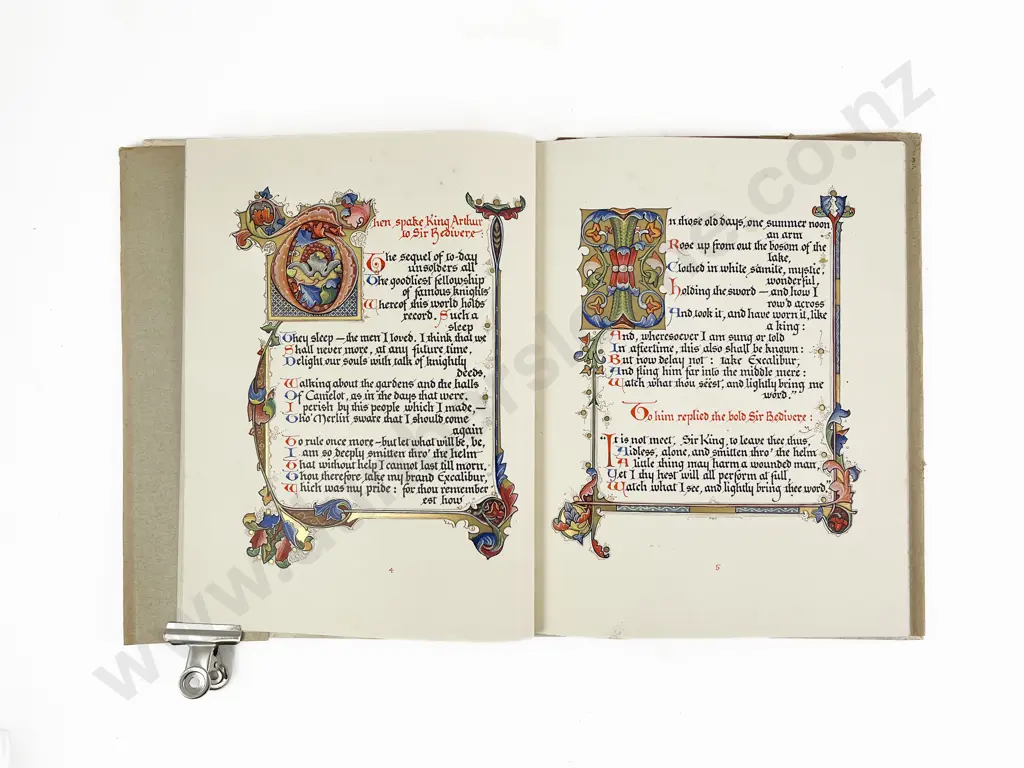 Then spake King Arthur
to Sir Bedivere:
The sequel of to-day
unsolders all
The goodliest fellowship
of famous knights
Whereof this world holds
record. Such a
sleep
They sleep — the men I loved. I think that we
Shall never more, at any future time,
Delight our souls with talk of knightly
deeds,
Walking about the gardens and the halls
Of Camelot, as in the days that were.
I perish by this people which I made, —
Tho' Merlin sware that I should come
again
To rule once more — but let what will be, be,
I am so deeply smitten thro' the helm
That without help I cannot last till morn.
Thou therefore take my brand Excalibur,
Which was my pride: for thou remember
est how
4
In those old days, one summer noon
an arm
Rose up from out the bosom of the
lake,
Clothed in white samite, mystic,
wonderful,
Holding the sword — and how I
row'd across
And took it, and have worn it, like
a king:
And, wheresoever I am sung or told
In aftertime, this also shall be known:
But now delay not: take Excalibur,
And fling him far into the middle mere:
Watch what thou sëest, and lightly bring me
word."
To him replied the bold Sir Bedivere:
"It is not meet, Sir King, to leave thee thus,
Aidless, alone, and smitten thro' the helm
A little thing may harm a wounded man,
Yet I thy hest will all perform at full,
Watch what I see, and lightly bring thee word."
5